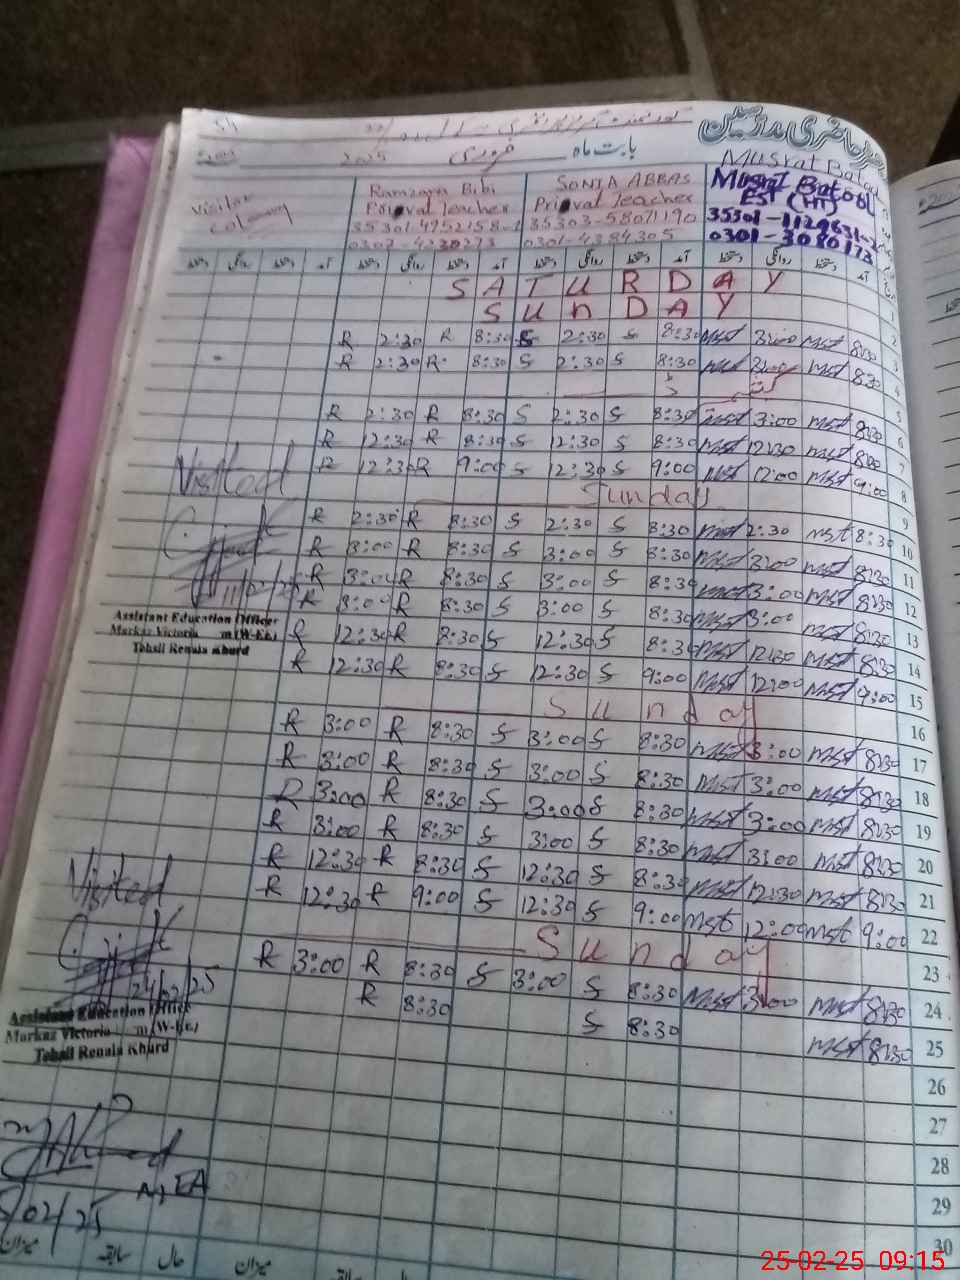 رجسٹر حاضری مدرسین
بابت ماہ فروری 2025
Musrat Batool
Visitor
Ramzana Bibi
SONIA ABBAS
Musrat Batool
Teacher
Teacher
EST (HT)
35303-5807119 0
0307-4230273
0301-4384305
0301-3080173
آمد دستخط روانگی دستخط آمد دستخط روانگی دستخط آمد دستخط روانگی دستخط
SATURDAY 1
SUNDAY 2
R 2:30 R 8:30 S 2:30 S 8:30 mst 3:00 mst 8:30 3
R 2:30 R 8:30 S 2:30 S 8:30 mst mst 8:30 4
S 5
R 2:30 R 8:30 S 2:30 S 8:30 mst 3:00 mst 8:30 6
R 12:30 R 8:30 S 12:30 S 8:30 mst 12:30 mst 7
R 12:30 R 9:00 S 12:30 S 9:00 mst 12:00 mst 9:00 8
Visited
Sunday 9
R 2:30 R 8:30 S 2:30 S 8:30 mst 2:30 mst 8:30 10
R 3:00 R 8:30 S 3:00 S 8:30 mst 3:00 mst 8:30 11
R 3:00 R 8:30 S 3:00 S 8:30 mst 3:00 mst 8:30 12
R 3:00 R 8:30 S 3:00 S 8:30 mst 3:00 mst 8:30 13
Assistant Education Officer
Markaz Victoria m(W-Ee.)
Tehsil Renala Khurd
R 12:30 R 8:30 S 12:30 S 8:30 mst 12:30 mst 8:30 14
R 12:30 R 8:30 S 12:30 S 9:00 mst 12:00 mst 9:00 15
Sunday 16
R 3:00 R 8:30 S 3:00 S 8:30 mst 3:00 mst 8:30 17
R 3:00 R 8:30 S 3:00 S 8:30 mst 3:00 mst 8:30 18
R 3:00 R 8:30 S 3:00 S 8:30 mst 3:00 mst 8:30 19
R 3:00 R 8:30 S 3:00 S 8:30 mst 3:00 mst 8:30 20
R 12:30 R 8:30 S 12:30 S 8:30 mst 12:30 mst 8:30 21
R 12:30 R 9:00 S 12:30 S 9:00 mst 12:00 mst 9:00 22
Visited
Sunday 23
R 3:00 R 8:30 S 3:00 S 8:30 mst 3:00 mst 8:30 24
R 8:30 S 8:30 mst 8:30 25
24/02/25
Assistant Education Officer
Markaz Victoria m(W-Ee.)
Tehsil Renala Khurd
26
27
28
29
30
AEA
/02/25
میزان سابقہ حال میزان سابقہ حال
25-02-25 09:15